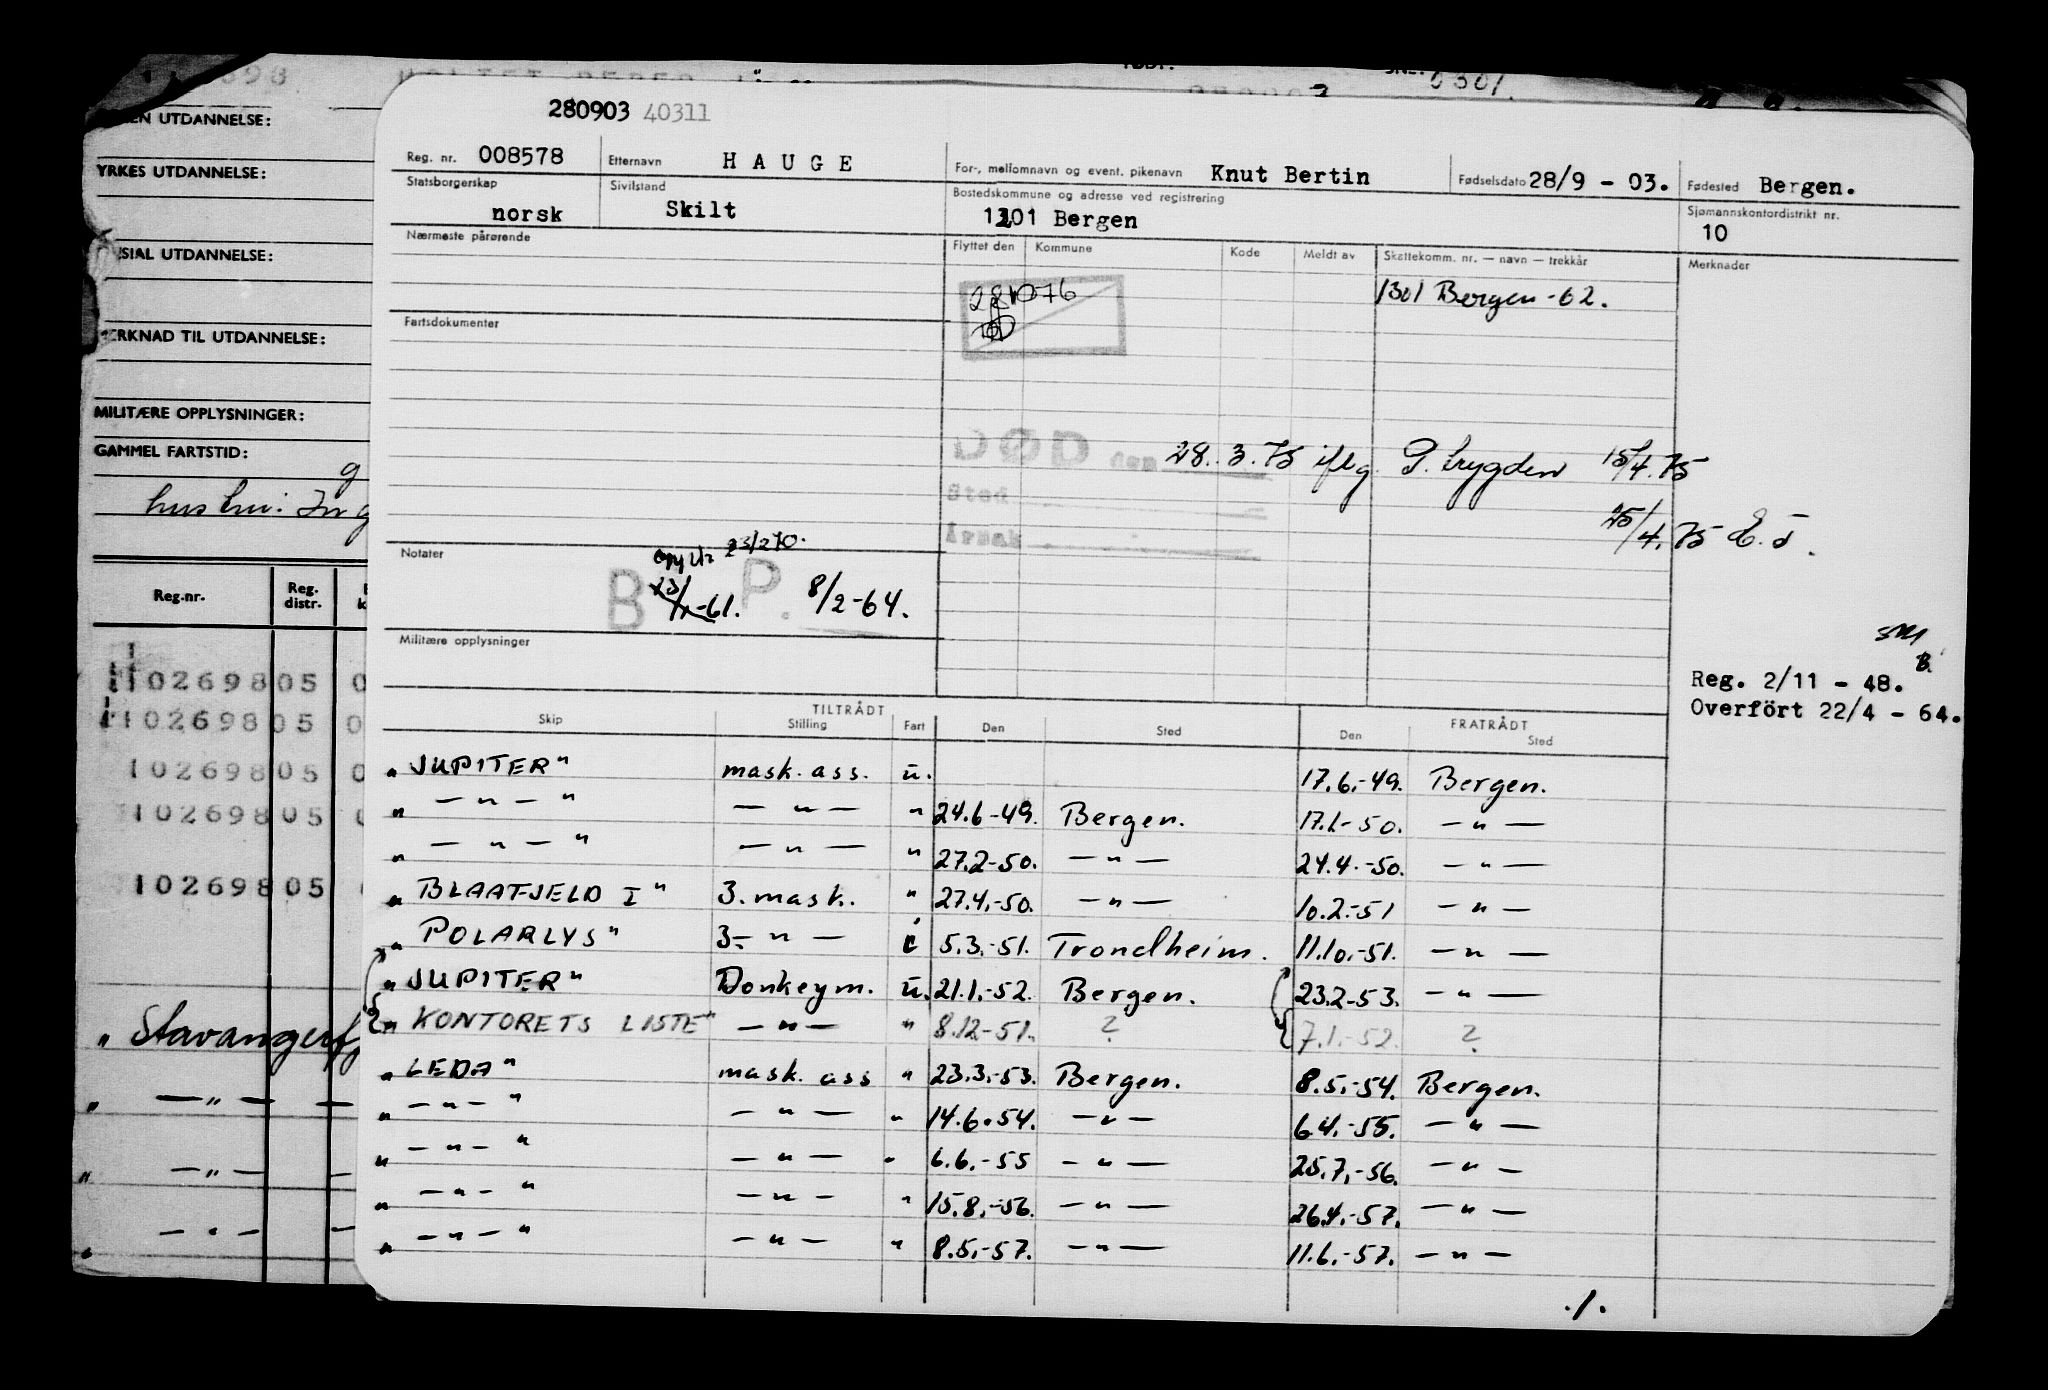 280903 40311
Reg. nr. 008578 Etternavn HAUGE For-, mellomnavn og event. pikenavn Knut Bertin Fødselsdato 28/9 - 03. Fødested Bergen.
Statsborgerskap norsk Sivilstand Skilt Bostedskommune og adresse ved registrering 1301 Bergen Sjømannskontordistrikt nr. 10
Nærmeste pårørende Flyttet den Kommune Kode Meldt av Skattekomm. nr. — navn — trekkår Merknader
281076 1301 Bergen -62.
Fartsdokumenter
DØD den 28.3.75 iflg. P. trygden 15/4.75
Sted
Årsak
25/4.75 E.T.
Notater
23/2 70.
B.P. 23/1-61. 8/2-64.
Militære opplysninger
Reg. 2/11 - 48.
Overfört 22/4 - 64.
TILTRÅDT FRATRÅDT
Skip Stilling Fart Den Sted Den Sted
"JUPITER" mask. ass. u. 17.6.-49. Bergen.
" — " — " — " — " 24.6-49. Bergen. 17.1-50. — " —
" — " — " — " — " 27.2-50. — " — 24.4.-50. — " —
"BLAAFJELD I" 3. mask. " 27.4.-50. — " — 10.2.-51 — " —
"POLARLYS" 3. — " — i 5.3.-51. Trondheim. 11.10.-51. — " —
"JUPITER" Donkeym. u. 21.1.-52. Bergen. 23.2-53. — " —
"KONTORETS LISTE" — " — " 8.12-51. ? 7.1.-52. ?
"LEDA" mask. ass " 23.3.-53. Bergen. 8.5.-54. Bergen.
" — " — " — " — " 14.6.54. — " — 6.4.-55. — " —
" — " — " — " — " 6.6.-55 — " — 25.7.-56. — " —
" — " — " — " — " 15.8.-56. — " — 26.4.-57. — " —
" — " — " — " — " 8.5.-57. — " — 11.6.-57. — " —
./.
UTDANNELSE:
YRKES UTDANNELSE:
UTDANNELSE:
TIL UTDANNELSE:
MILITÆRE OPPLYSNINGER:
GAMMEL FARTSTID:
Reg.nr. Reg. distr.
10269805 0
10269805 0
10269805 0
10269805
10269805
" — " — —
" — " — —
" — " — —